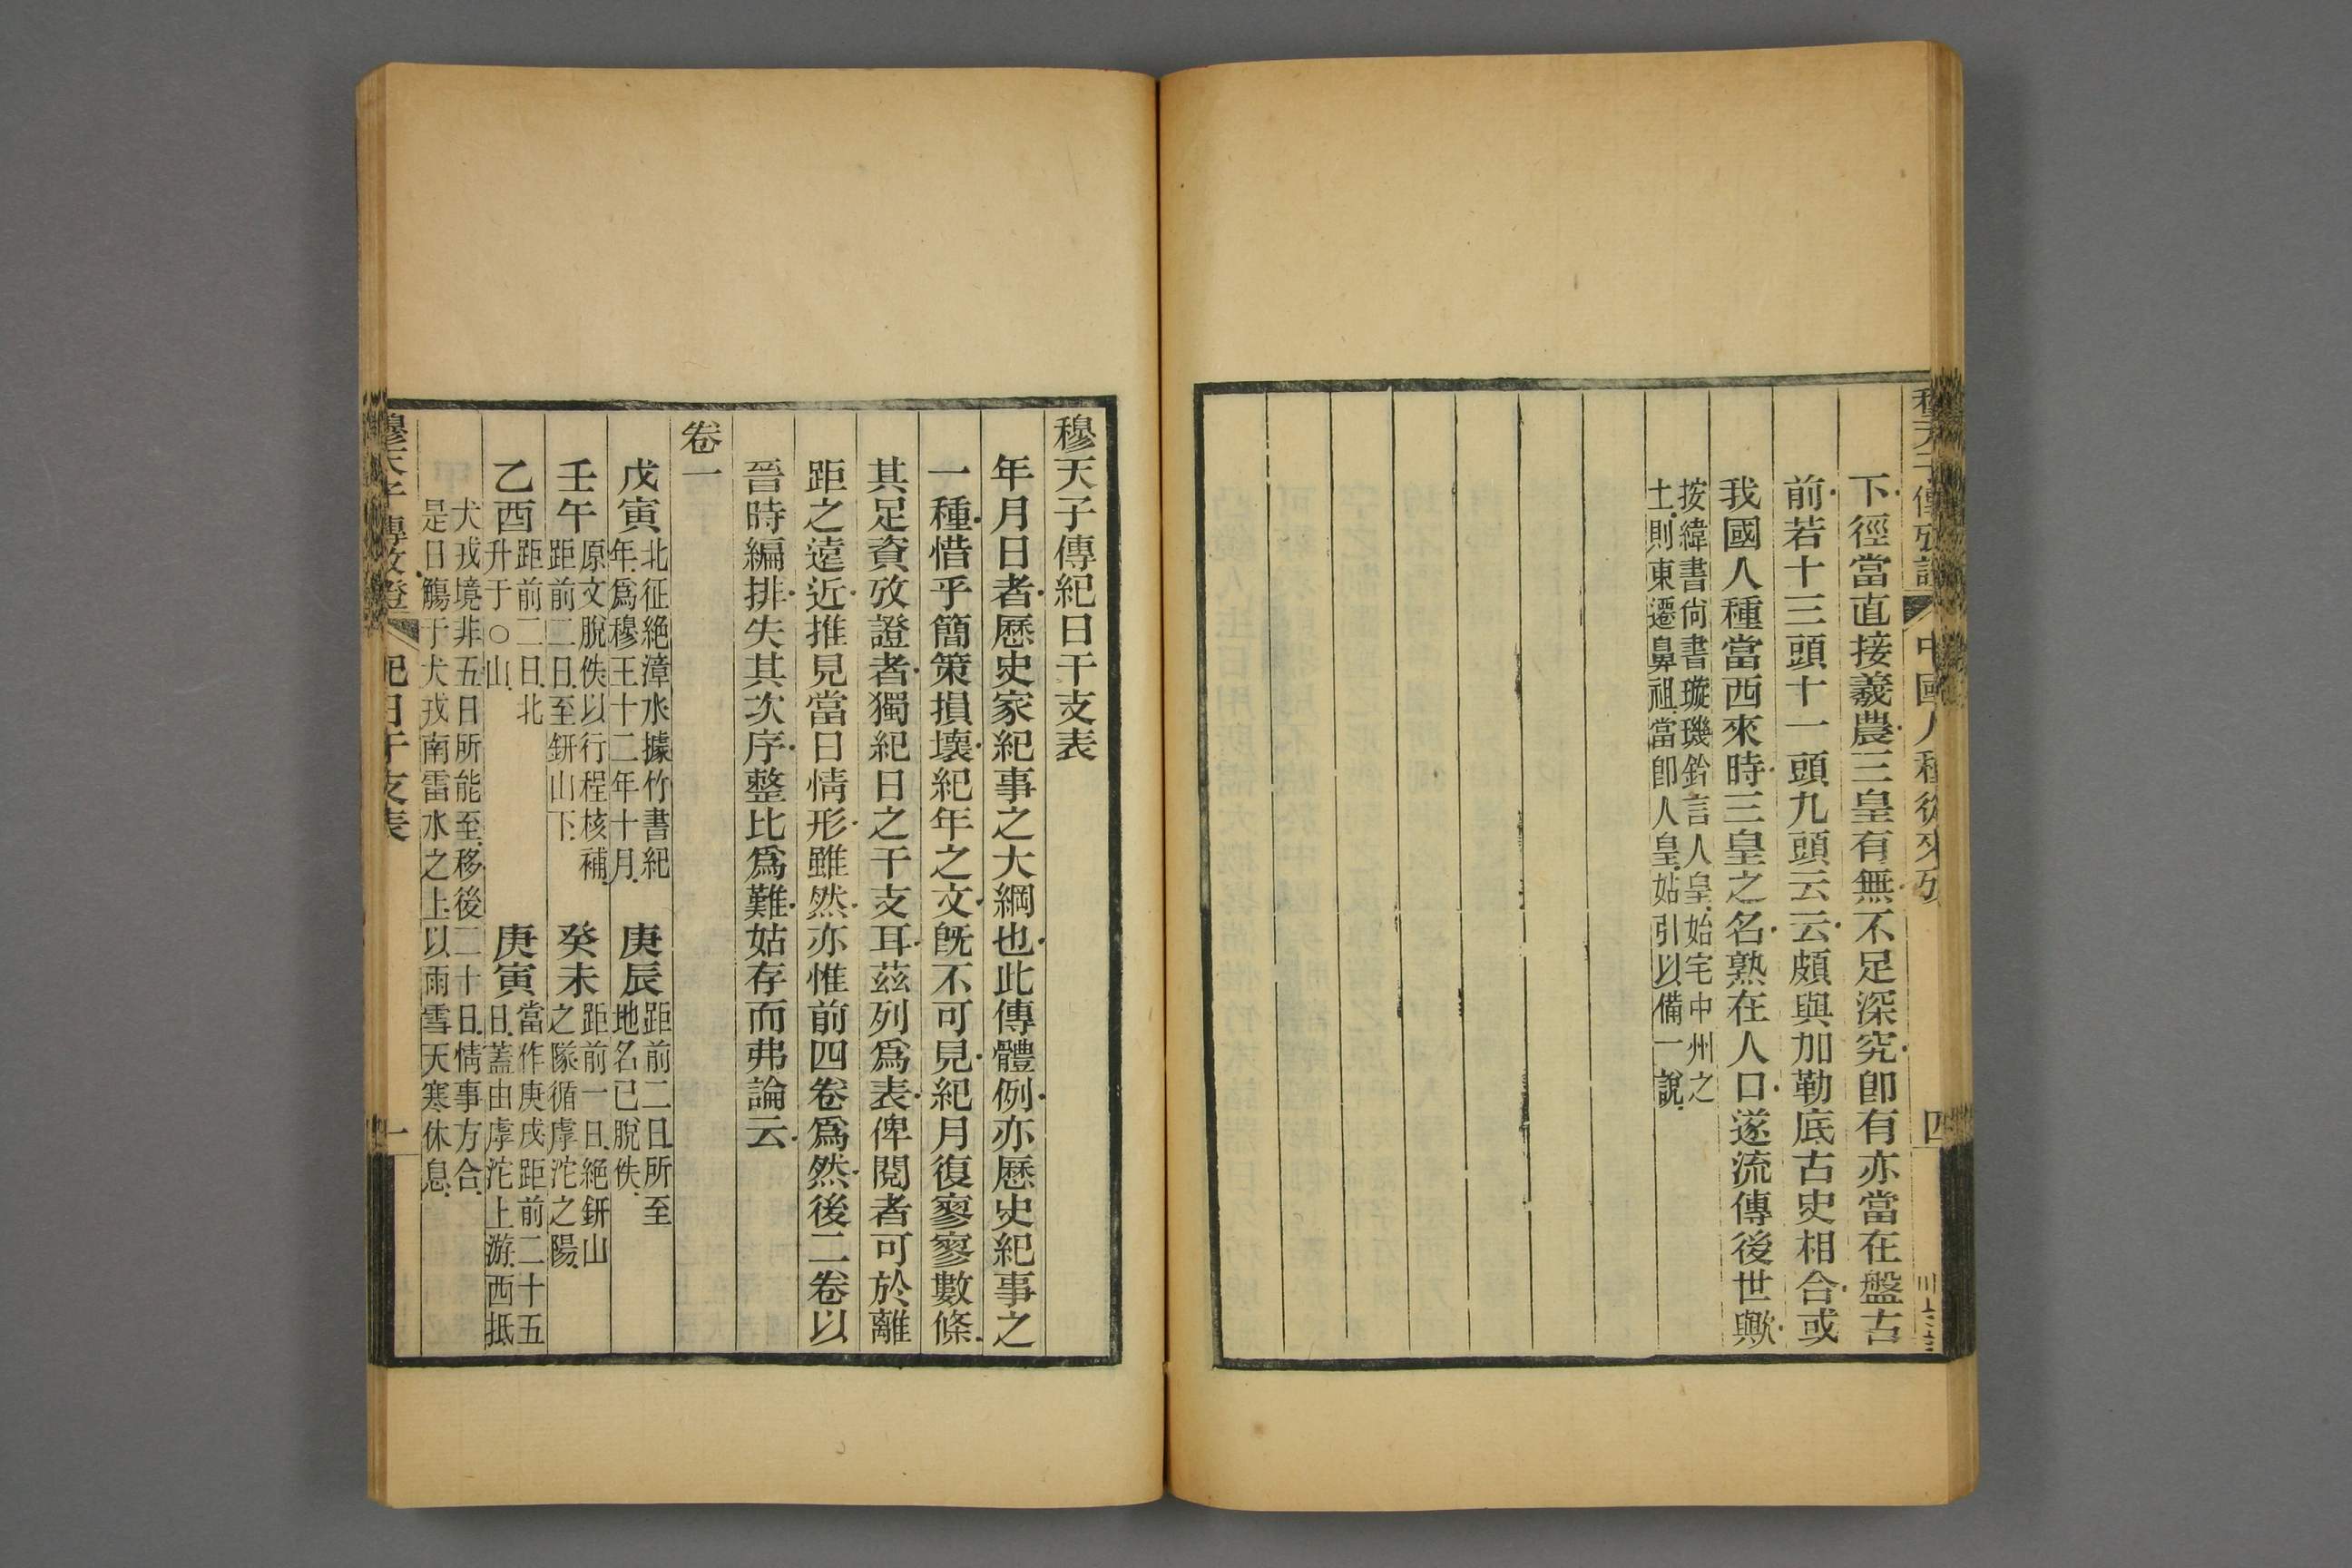 下徑當直接羲農三皇有無不足深究卽有亦當在盤古
前若十三頭十一頭九頭云云頗與加勒底古史相合或
我國人種當西來時三皇之名熟在人口遂流傳後世歟
按緯書尙書璇璣鈐言人皇始宅中州之
土則東遷鼻祖當卽人皇姑引以備一說
四
穆天子傳紀日干支表
年月日者歷史家紀事之大綱也此傳體例亦歷史紀事之
一種惜乎簡策損壞紀年之文旣不可見紀月復寥寥數條
其足資攷證者獨紀日之干支耳茲列爲表俾閱者可於離
距之遠近推見當日情形雖然亦惟前四卷爲然後二卷以
晉時編排失其次序整比爲難姑存而弗論云
卷一
戊寅
北征絶漳水據竹書紀
年爲穆王十二年十月
庚辰
距前二日所至
地名已脫佚
壬午
原文脫佚以行程核補
距前二日至鈃山下
癸未
距前一日絶鈃山
之隊循虖沱之陽
乙酉
距前二日北
升于○山
庚寅
當作庚戌距前二十五
日蓋由虖沱上游西抵
犬戎境非五日所能至移後二十日情事方合
是日觴于犬戎南雷水之上以雨雪天寒休息
穆天子傳攷證
紀日干支表
一